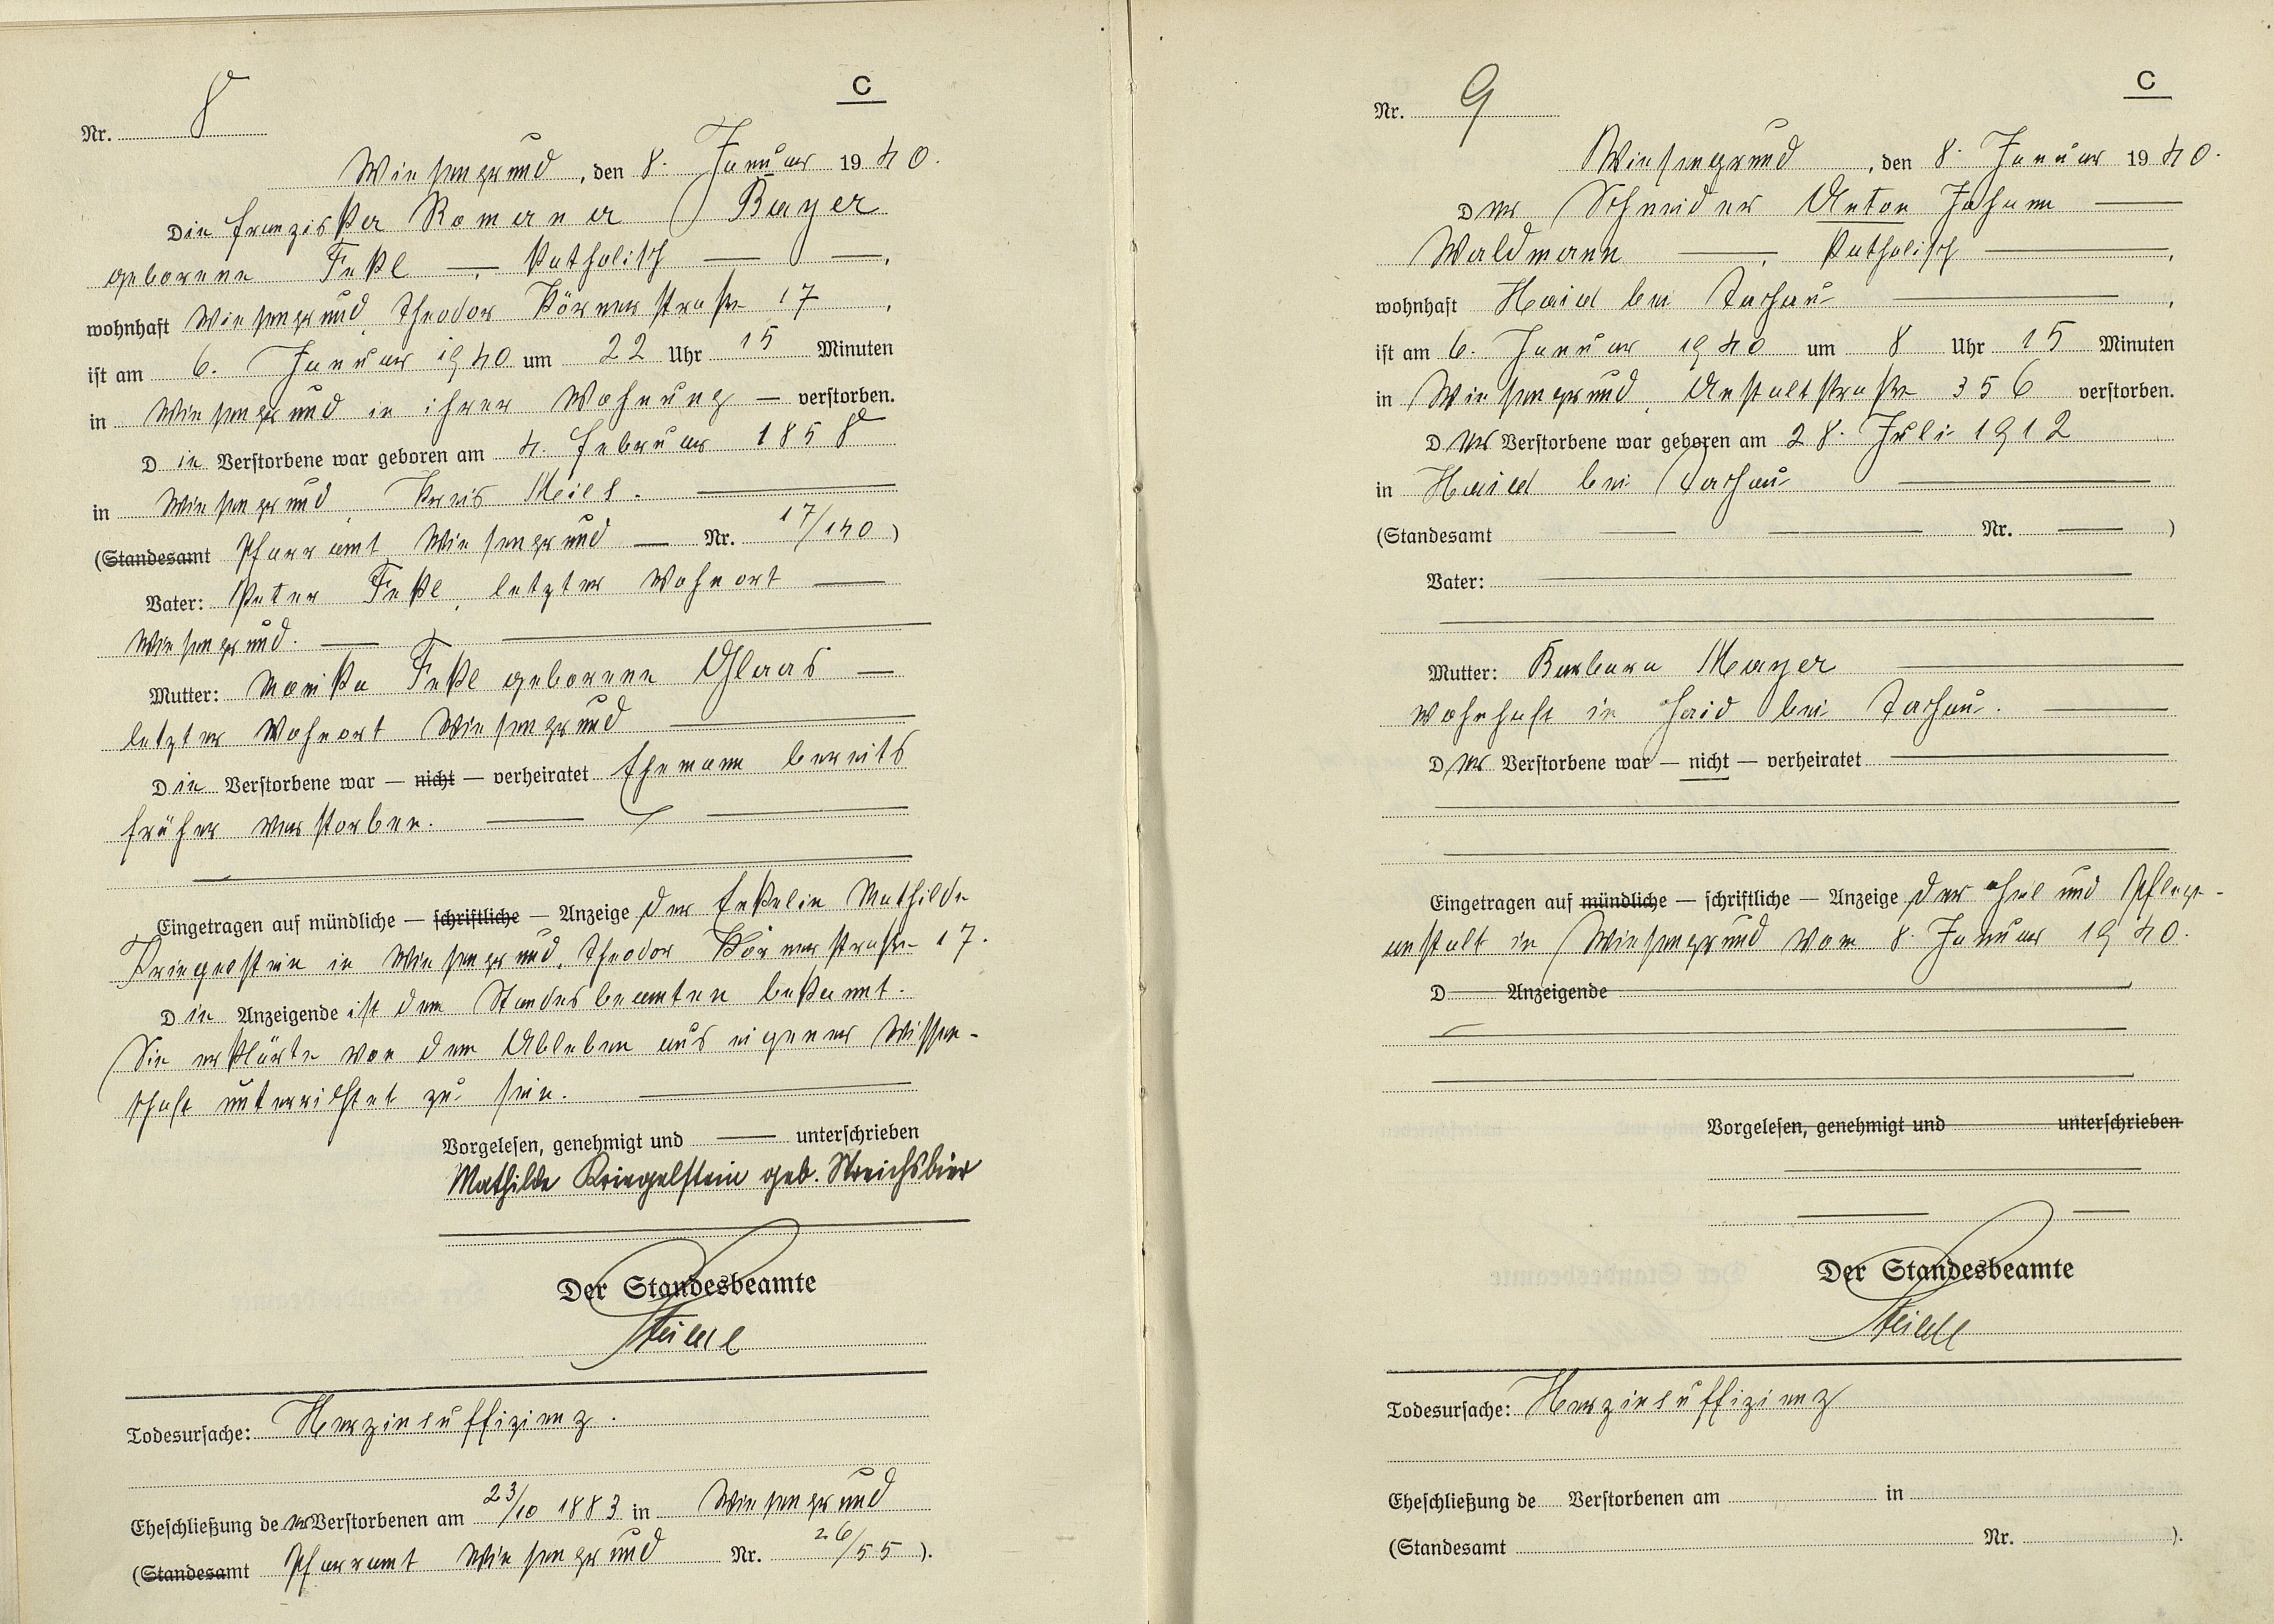 C
Nr. 8
Wiesengrund, den 8. Januar 1940.
Die Franziska Romana Bayer
geborene Fekl —, katholisch —,
wohnhaft Wiesengrund, Theodor Körnerstraße 17,
ist am 6. Januar 1940 um 22 Uhr 15 Minuten
in Wiesengrund in ihrer Wohnung — verstorben.
Die Verstorbene war geboren am 4. Februar 1858
in Wiesengrund, Kreis Mies.
(Standesamt Pfarramt Wiesengrund — Nr. 17/140)
Vater: Peter Fekl, letzter Wohnort —
Wiesengrund. —
Mutter: Fekl geborene Glaas —
letzter Wohnort Wiesengrund
Die Verstorbene war — nicht — verheiratet Ehemann bereits
früher verstorben.
Eingetragen auf mündliche — schriftliche — Anzeige der Enkelin Mathilde
Kriegelstein in Wiesengrund, Theodor Körnerstraße 17.
Die Anzeigende ist dem Standesbeamten bekannt.
Sie erklärte von dem Ableben aus eigener Wissen-
schaft unterrichtet zu sein.
Vorgelesen, genehmigt und — unterschrieben
Mathilde Kriegelstein geb. Streichsbier
Der Standesbeamte
Todesursache: Herzinsuffizienz.
Eheschließung der Verstorbenen am 23/10 1883 in Wiesengrund
(Standesamt Pfarramt Wiesengrund Nr. 26/55).
C
Nr. 9
Wiesengrund, den 8. Januar 1940.
Der Schneider Anton Johann —
Waldmann —, katholisch —,
wohnhaft Haid bei Tachau —,
ist am 6. Januar 1940 um 8 Uhr 15 Minuten
in Wiesengrund, Anstaltstraße 356 verstorben.
Der Verstorbene war geboren am 28. Juli 1912
in Haid bei Tachau
(Standesamt — Nr. —)
Vater:
Mutter: Barbara Mayer
wohnhaft in Haid bei Tachau.
Der Verstorbene war — nicht — verheiratet
Eingetragen auf mündliche — schriftliche — Anzeige der Heil und Pflege-
anstalt in Wiesengrund vom 8. Januar 1940.
D Anzeigende
Vorgelesen, genehmigt und unterschrieben
Der Standesbeamte
Todesursache: Herzinsuffizienz
Eheschließung de Verstorbenen am in
(Standesamt Nr. ).